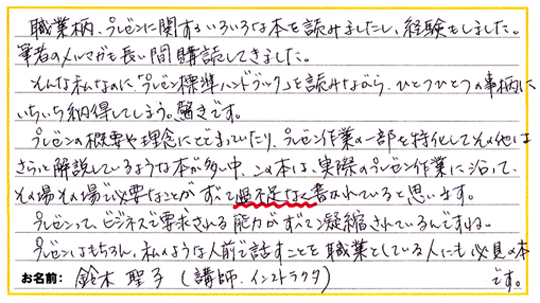 職業柄、プレゼンに関するいろいろな本を読みましたし、経験もしました。
筆者のメルマガも長い間購読してきました。
そんな私なのに「プレゼン標準ハンドブック」を読みながら、ひとつひとつの事柄に
いちいち納得してしまう。驚きです。
プレゼンの概要や理念にとどまっていたり、プレゼン作業の一部を特化してその他は
さらっと解説しているような本が多い中、この本は、実際のプレゼン作業に沿って、
その場その場で必要なことがすべて過不足なく書かれていると思います。
プレゼンって、ビジネスで要求される能力がすべて凝縮されているんですね。
プレゼンはもちろん、私のような人前で話すことを職業としている人にも必見の本
です。
お名前: 鈴木 聖子 (講師・インストラクタ)